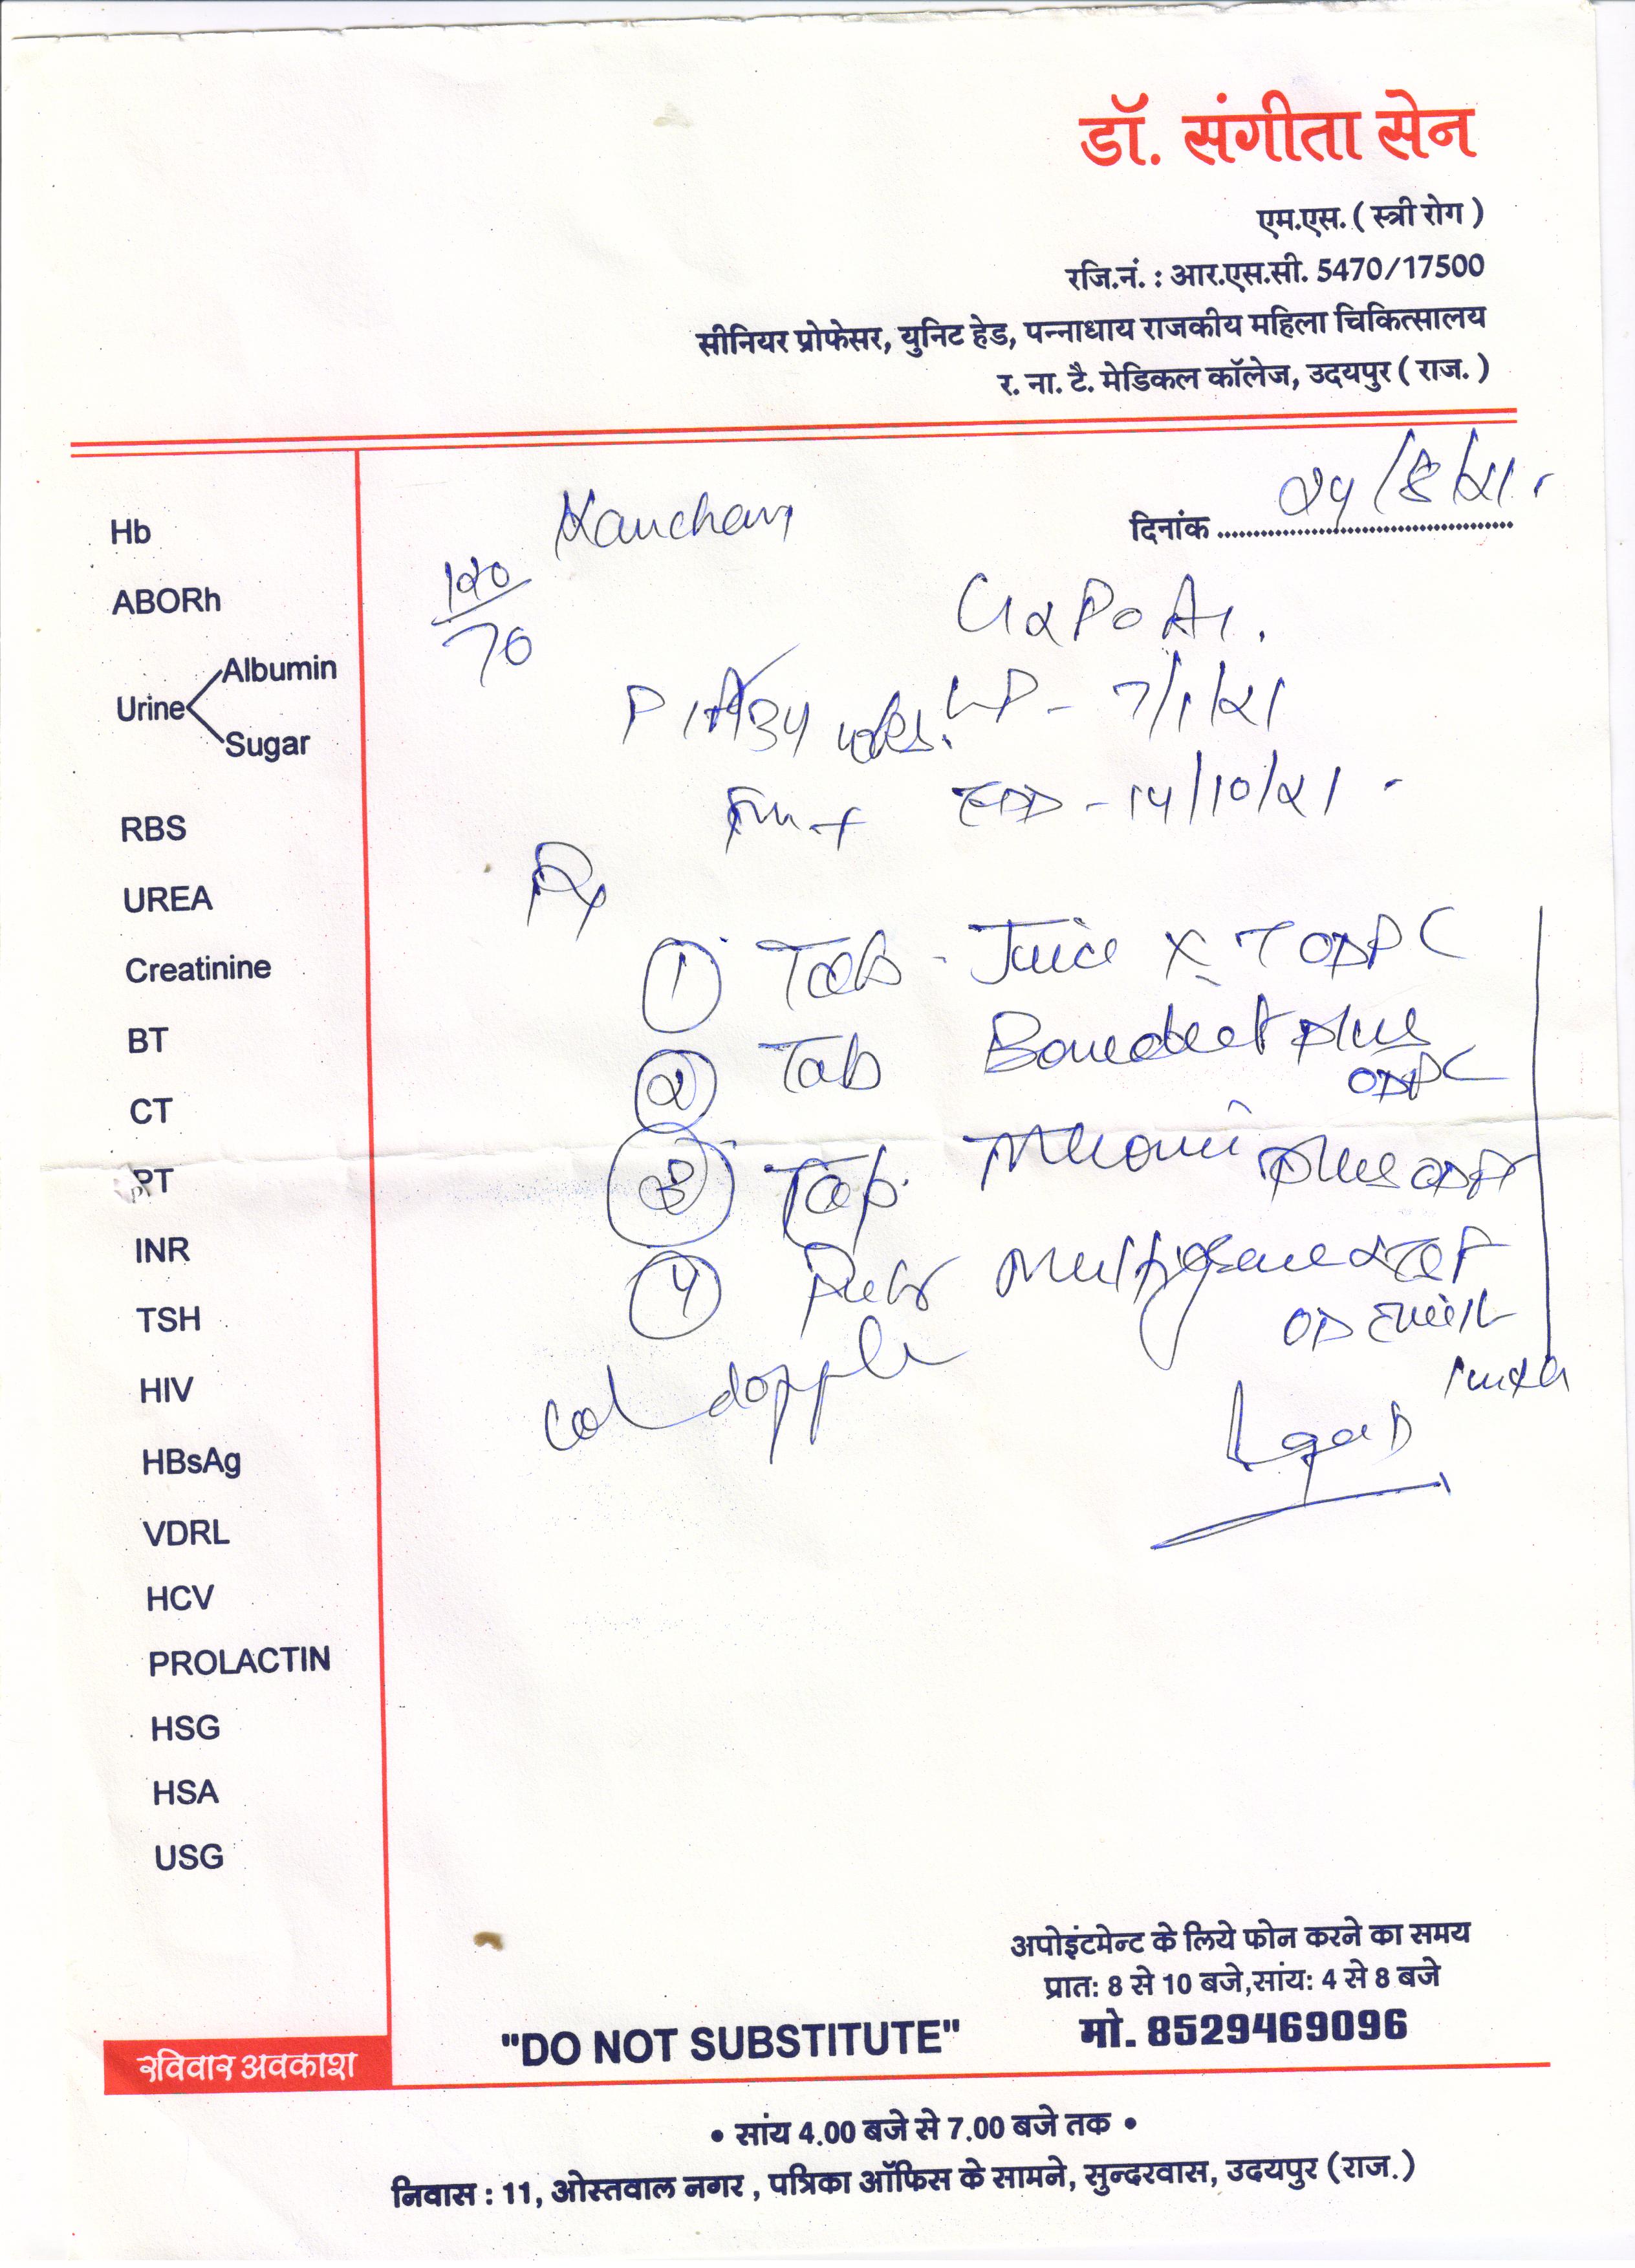 डॉ. संगीता सेन
एम.एस. ( स्त्री रोग )
रजि.नं. : आर.एस.सी. 5470/17500
सीनियर प्रोफेसर, युनिट हेड, पन्नाधाय राजकीय महिला चिकित्सालय
र. ना. टै. मेडिकल कॉलेज, उदयपुर ( राज. )
दिनांक 24/8/21
Kanchan
120/70
G2P0A1.
34 wks. LMP - 7/1/21
EDD - 14/10/21
Rx
① Tab - Juice X T OD PC
② Tab plus
OD PC
③ Tab. plus
④
OD
col doppler
Hb
ABORh
Urine
Albumin
Sugar
RBS
UREA
Creatinine
BT
CT
PT
INR
TSH
HIV
HBsAg
VDRL
HCV
PROLACTIN
HSG
HSA
USG
अपोइंटमेन्ट के लिये फोन करने का समय
प्रात: 8 से 10 बजे,सांय: 4 से 8 बजे
मो. 8529469096
"DO NOT SUBSTITUTE"
रविवार अवकाश
• सांय 4.00 बजे से 7.00 बजे तक •
निवास : 11, ओस्तवाल नगर , पत्रिका ऑफिस के सामने, सुन्दरवास, उदयपुर (राज.)